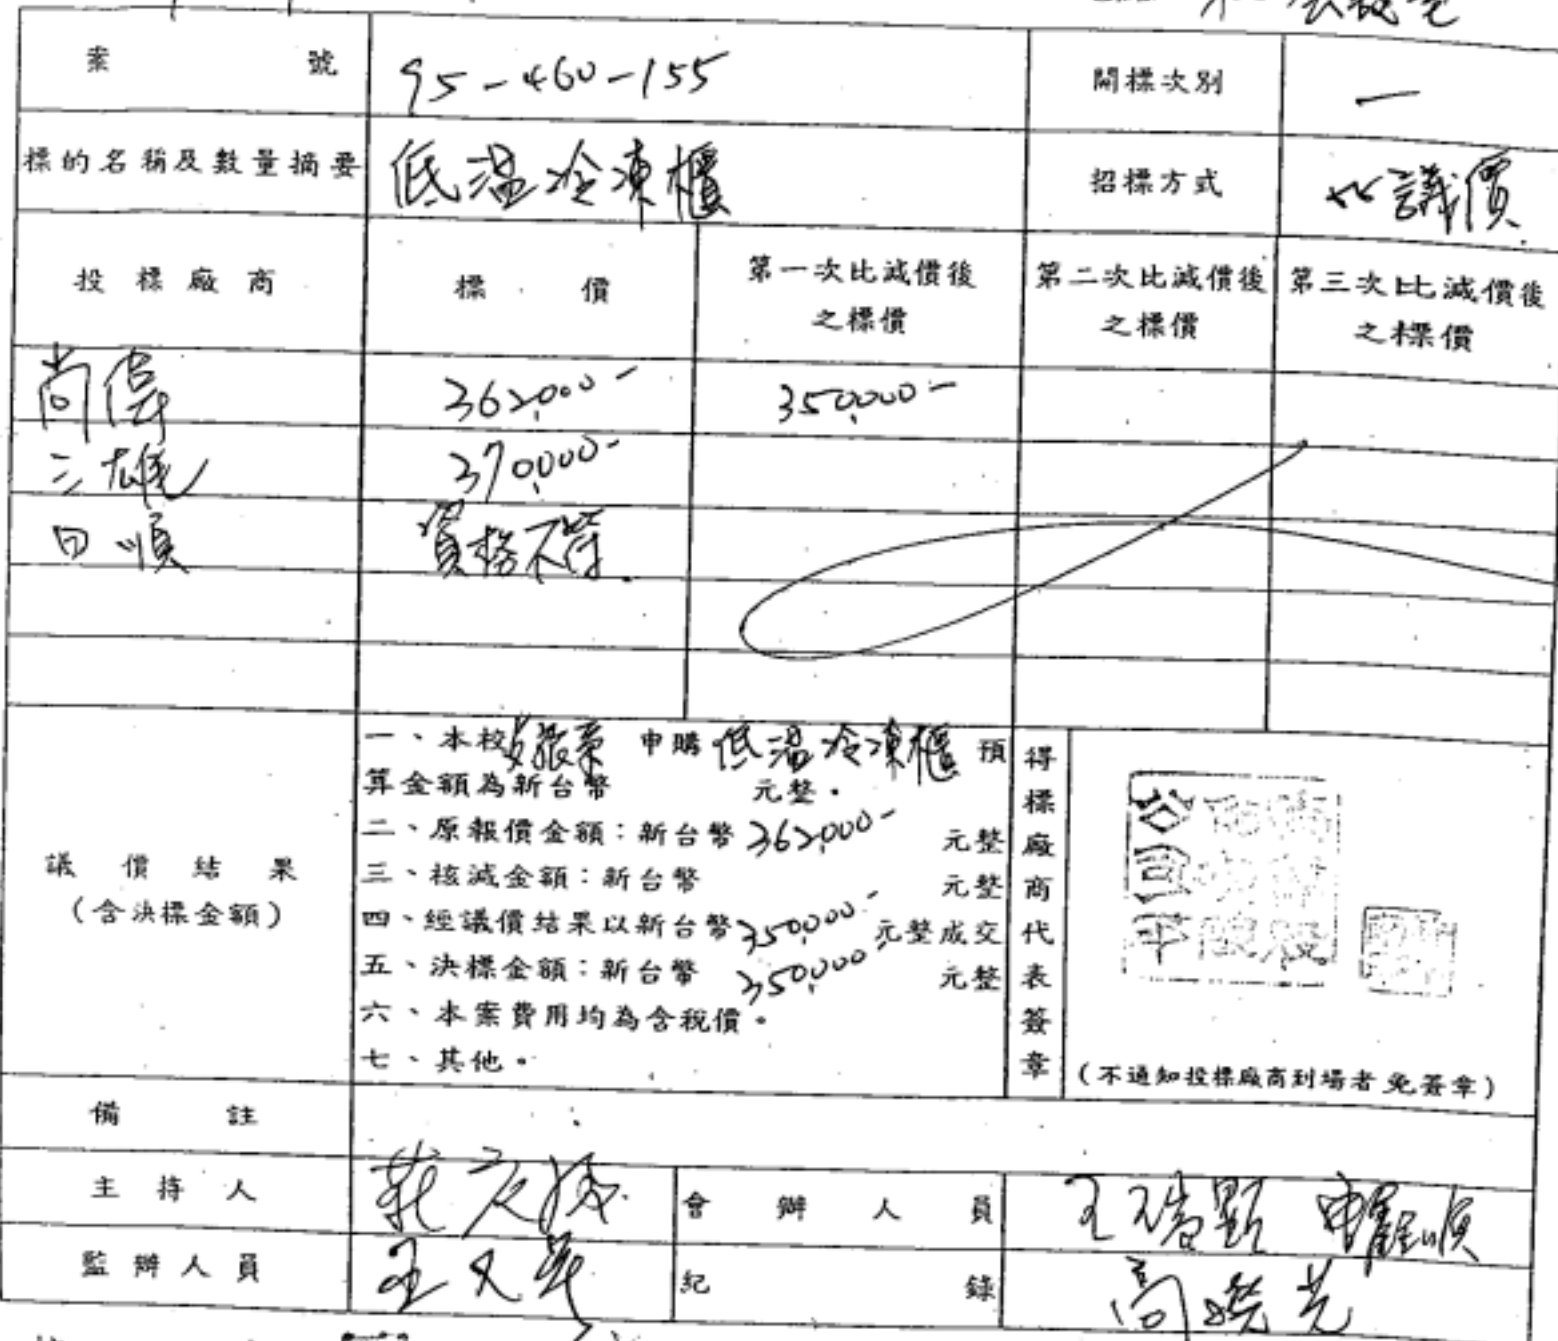 案號 95-460-155 開標次別 一
標的名稱及數量摘要 低溫冷凍櫃 招標方式 議價
投標廠商 標價 第一次比減價後之標價 第二次比減價後之標價 第三次比減價後之標價
尚偉 362,000- 350,000-
三雄 370,000-
日順 資格不符
議價結果
(含決標金額)
一、本校 申購 低溫冷凍櫃 預
算金額為新台幣 元整。
二、原報價金額：新台幣 362,000- 元整
三、核減金額：新台幣 元整
四、經議價結果以新台幣 350,000- 元整成交
五、決標金額：新台幣 350,000- 元整
六、本案費用均為含稅價。
七、其他。
得標廠商代表簽章
(不通知投標廠商到場者免簽章)
備註
主持人 會辦人員
監辦人員 紀錄